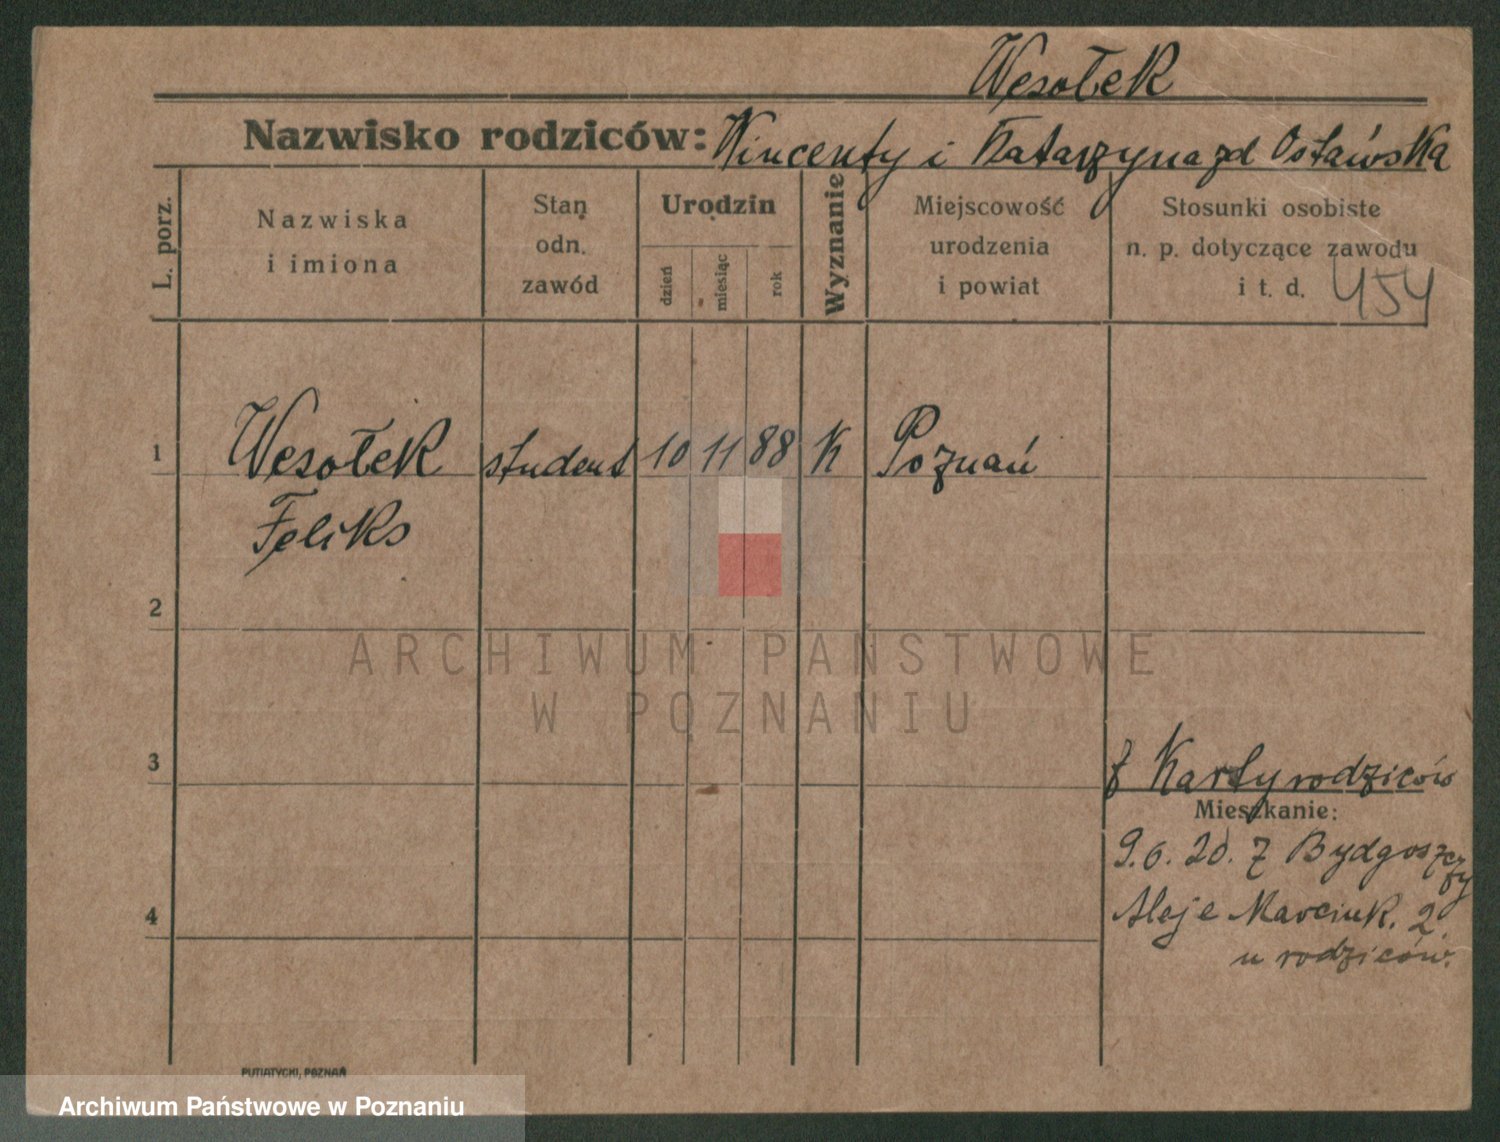 Wesołek
Nazwisko rodziców: Wincenty i Katarzyna zd Osławska
L. porz.
Nazwiska
i imiona
Stan
odn.
zawód
Urodzin
dzień
miesiąc
rok
Wyznanie
Miejscowość
urodzenia
i powiat
Stosunki osobiste
n. p. dotyczące zawodu
i t. d. 454
1 Wesołek student 10 11 88 K Poznań
Feliks
2
ARCHIWUM PAŃSTWOWE
W POZNANIU
3
z Karty rodziców
Mieszkanie:
9.6.20. z Bydgoszczy
4
Aleje Marcink. 2.
u rodziców.
PUTIATYCKI, POZNAŃ
Archiwum Państwowe w Poznaniu